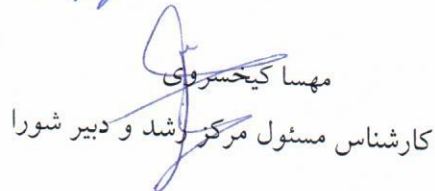 مهسا کیخسروی
کارشناس مسئول مرکز رشد و دبیر شورا